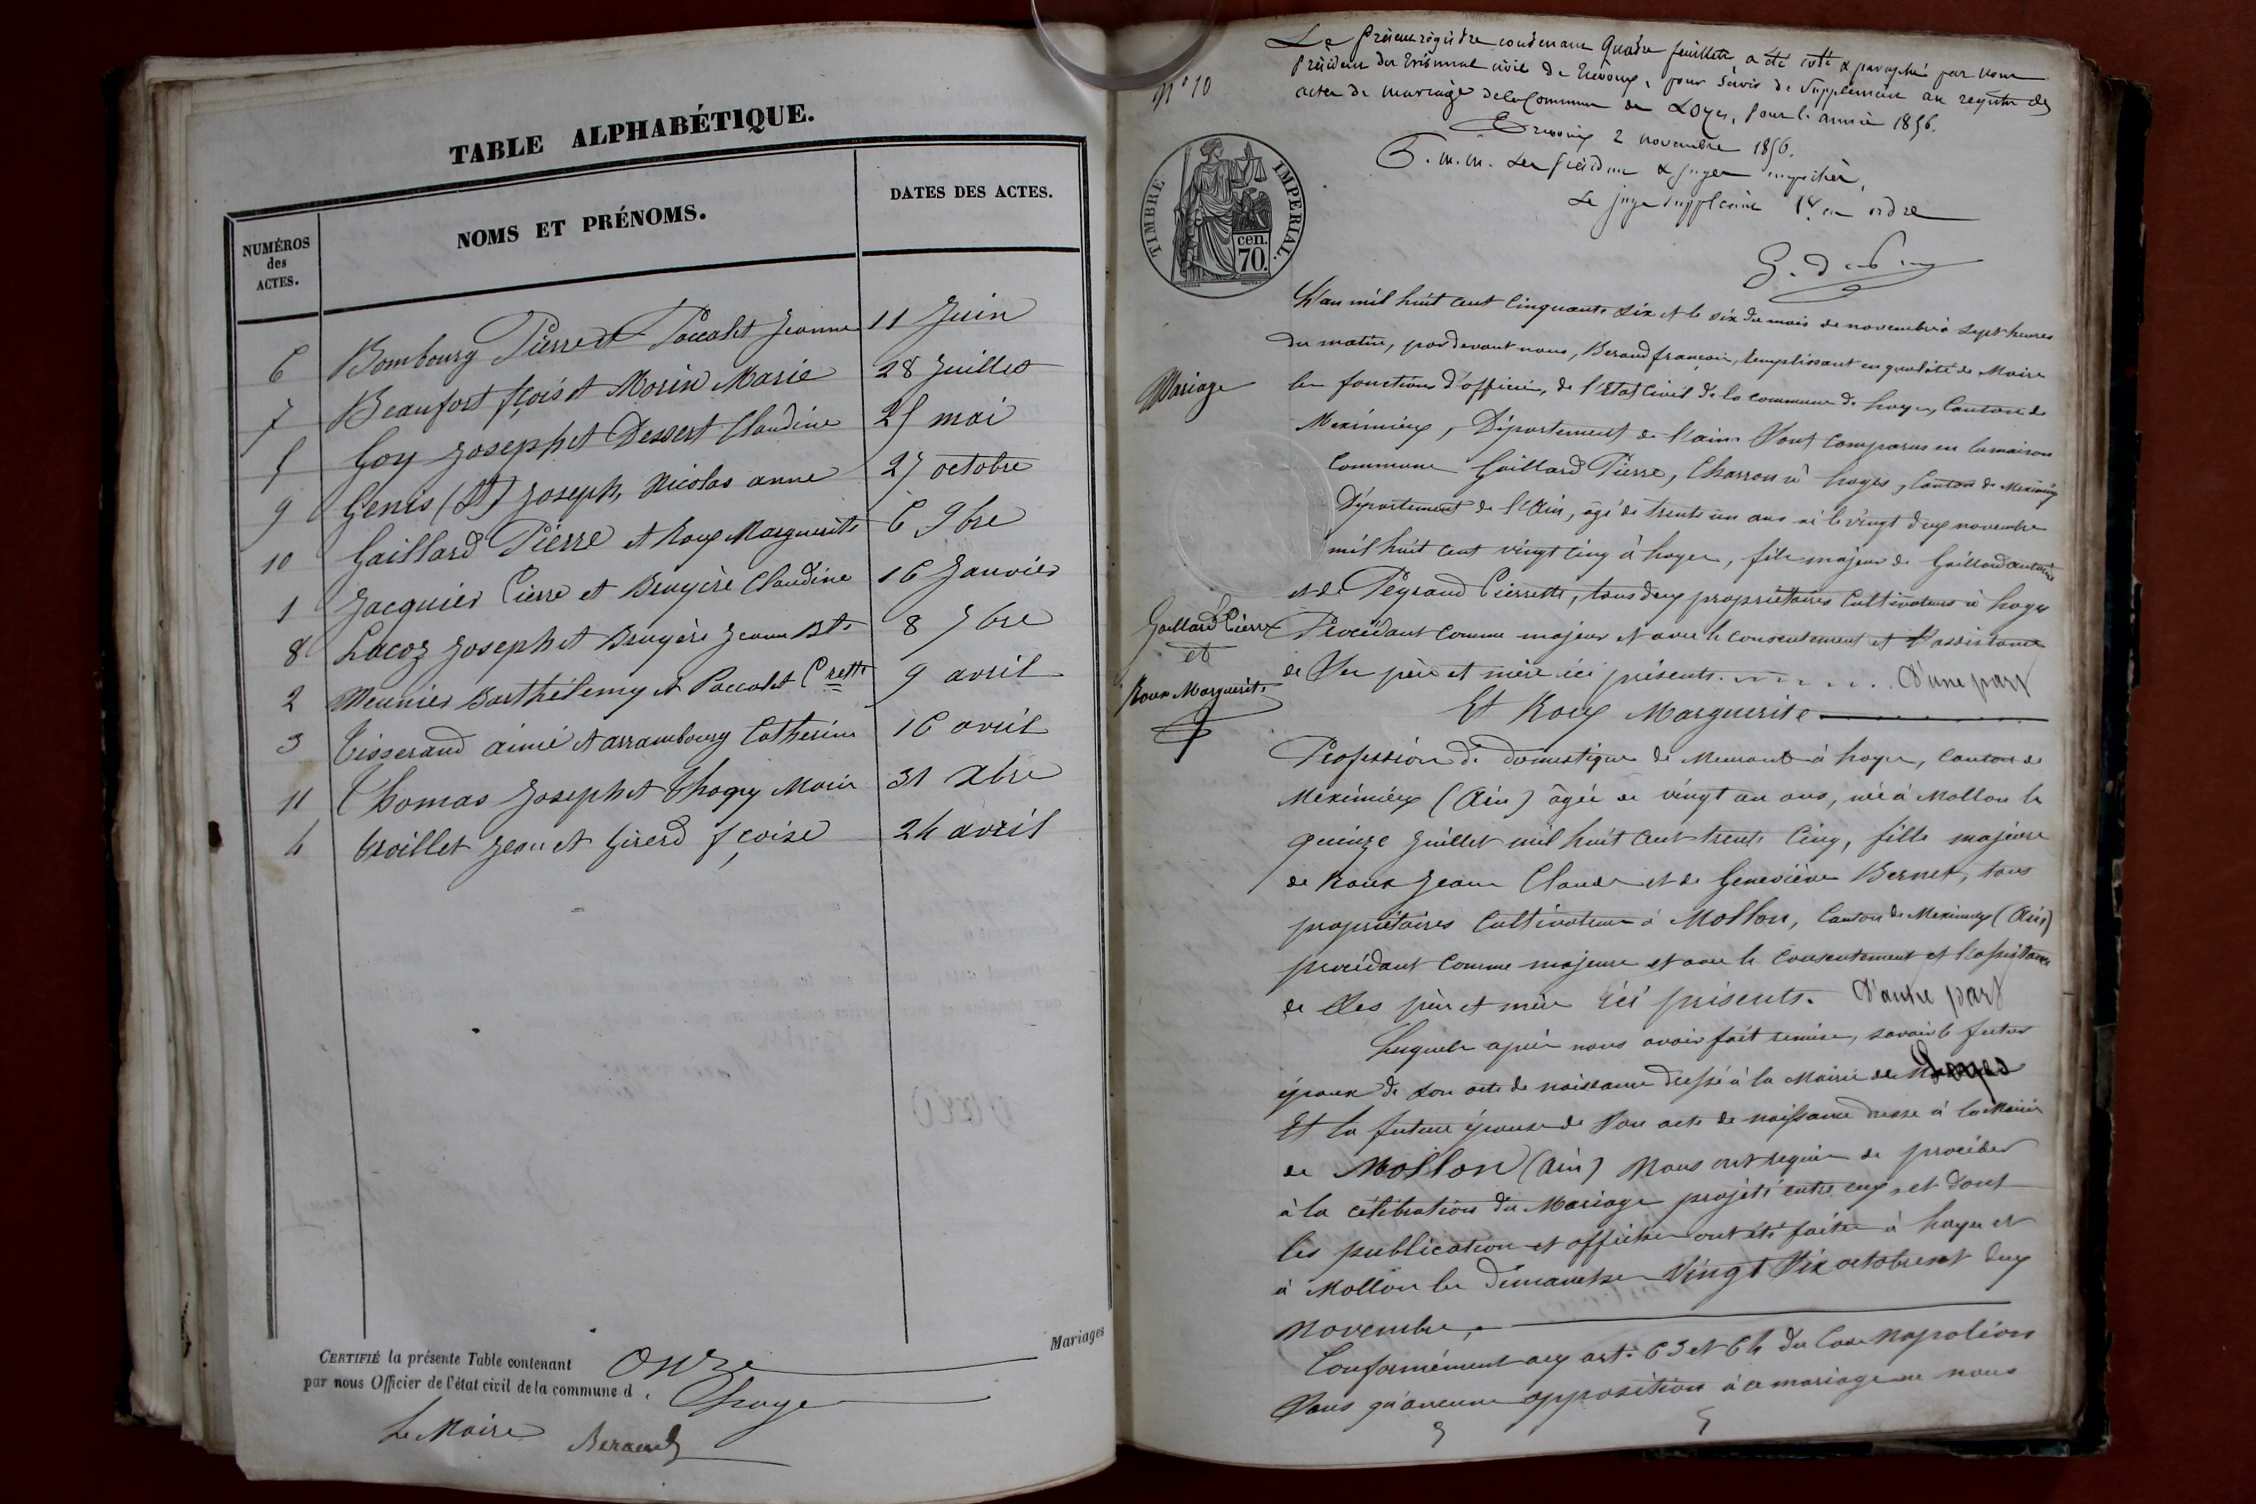 TABLE ALPHABÉTIQUE.
NUMÉROS
des
ACTES.
NOMS ET PRÉNOMS.
DATES DES ACTES.
6 Bombourg Pierre et Paccalet Jeanne 11 Juin
7 Beaufort fçois et Morin Marie 28 Juillet
5 Goy Joseph et Dessert Claudine 25 mai
9 Genis (St) Joseph, Nicolas anne 27 octobre
10 Gaillard Pierre et Roux Marguerite 6 9bre
1 Jacquier Pierre et Bruyère Claudine 16 Janvier
8 Lacoz Joseph et Bruyère Jeanne Bte 8 7bre
2 Meunier Barthélemy et Paccalet Prette 9 avril
3 Tisserand aimé et arrambourg Catherine 16 avril
11 Thomas Joseph et Marie 31 Xbre
4 Troillet Jean et Girerd fçoise 24 avril
CERTIFIÉ la présente Table contenant Onze
par nous Officier de l'état civil de la commune d Loyes
Le Maire Beraud
Mariages
N° 10
Le présent registre contenant quatre feuillets, a été coté & paraphé par nous
Président du tribunal civil de Trévoux, pour servir de supplément au registre des
actes de mariage de la Commune de Loyes, pour l'année 1856.
Trévoux 2 novembre 1856.
P. M. M. les président & juges empêchés,
Le juge suppléant 1er en ordre
TIMBRE IMPÉRIAL.
70 cen.
L'an mil huit cent cinquante six et le six du mois de novembre à sept heures
du matin, pardevant nous, Beraud françois, remplissant en qualité de Maire
les fonctions d'officier, de l'état civil de la commune de Loyes, Canton de
Mariage
Meximieux, Département de l'ain. Sont comparus en la maison
Commune Gaillard Pierre, Charron à Loyes, Canton de Meximieux
Département de l'Ain, âgé de trente un ans né le vingt deux novembre
mil huit cent vingt cinq à Loyes, fils majeur de Gaillard antoine
et de Peyraud Pierrette, tous deux propriétaires Cultivateurs à Loyes
Gaillard Pierre
et
Roux Marguerite
Procédant comme majeur et avec le consentement et l'assistance
de Ses père et mère ici présents. D'une part
Et Roux Marguerite
Profession de domestique de à Loyes, Canton de
Meximieux (Ain) âgée de vingt un ans, née à Mollon le
quinze Juillet mil huit cent trente Cinq, fille majeure
de Roux Jean Claude et de Geneviève Bernet, tous
propriétaires Cultivateurs à Mollon, Canton de Meximieux (Ain)
procédant comme majeure et avec le Consentement et l'assistance
de Ses père et mère ici présents. D'autre part
Lesquels après nous avoir fait remise, savoir le futur
époux de son acte de naissance dressé à la Mairie de Loyes
Et la future épouse de Son acte de naissance dressé à la Mairie
de Mollon (Ain) Nous ont requis de procéder
à la célébration du Mariage projeté entre eux, et dont
les publications et affiches ont été faites à Loyes et
à Mollon les dimanches Vingt Six octobre et deux
Novembre,
Conformément aux art. 63 et 64 du Code Napoléon
Sans qu'aucune opposition à ce mariage ne nous